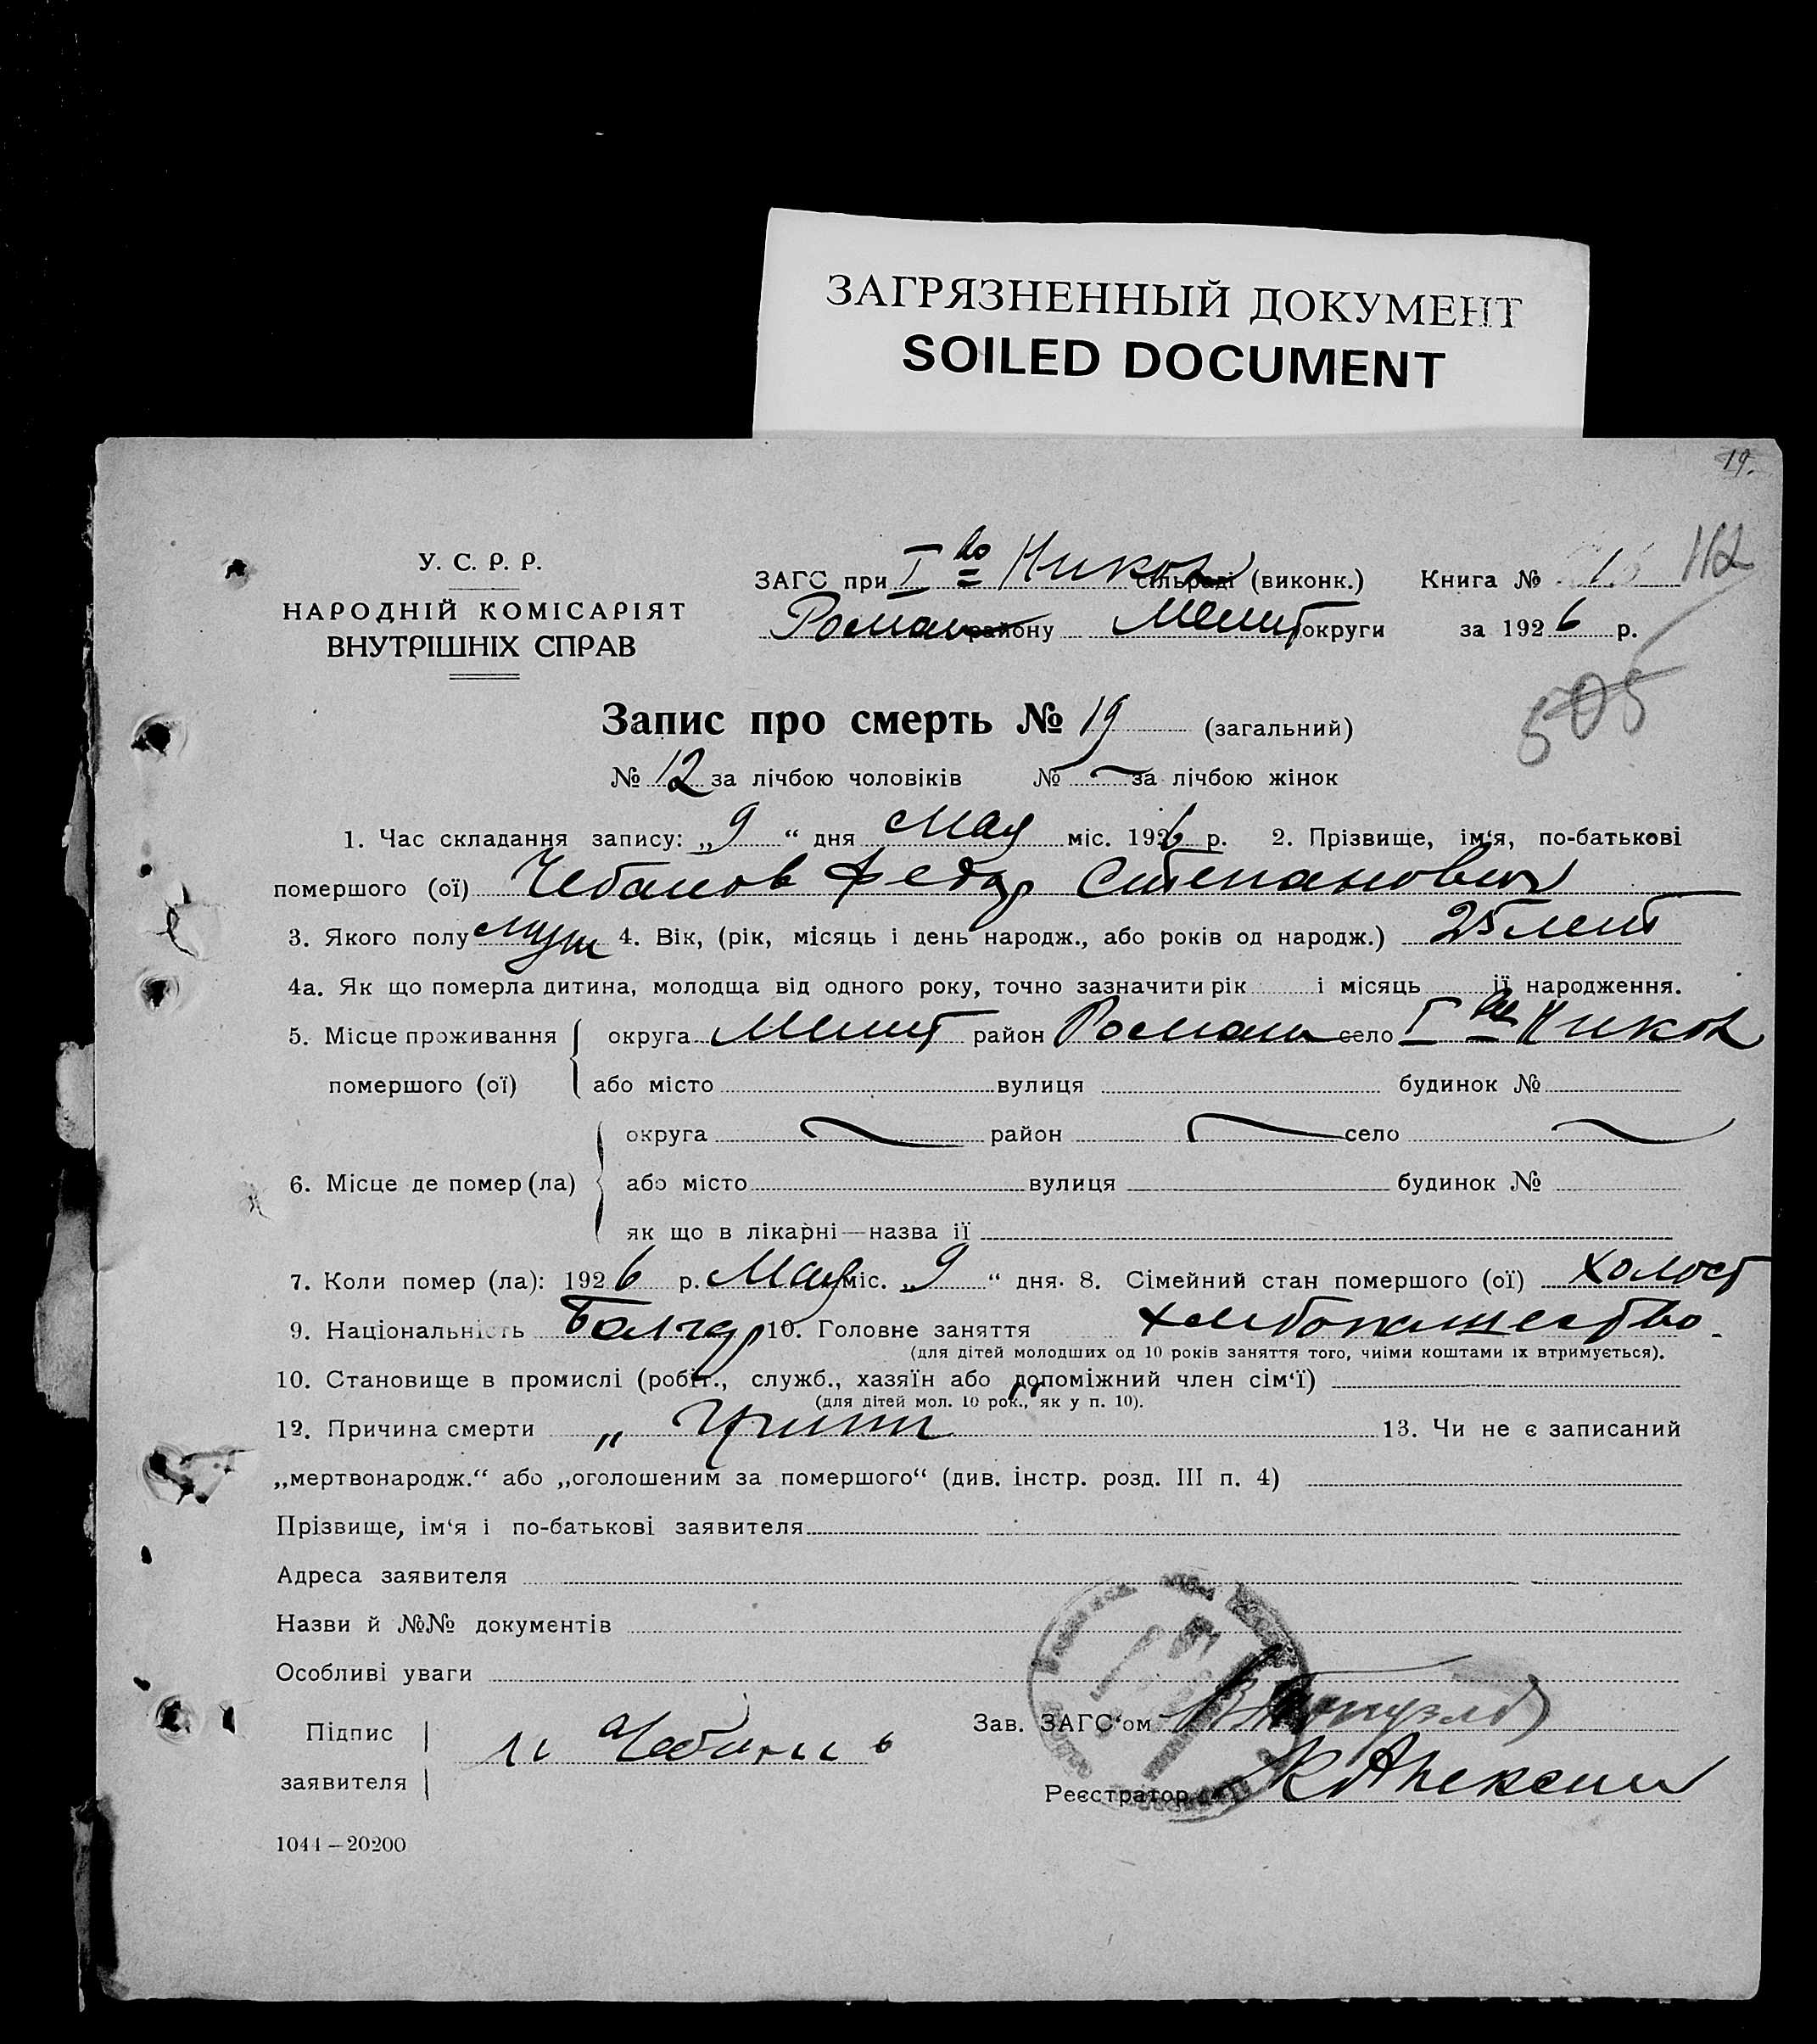 ЗАГРЯЗНЕННЫЙ ДОКУМЕНТ
SOILED DOCUMENT
19.
У. С. Р. Р.
НАРОДНІЙ КОМІСАРІЯТ
ВНУТРІШНІХ СПРАВ
ЗАГС при I Никол сільраді (виконк.) Книга № 1 112
Роман району Мелит округи за 1926 р.
505
Запис про смерть № 19 (загальний)
№ 12 за лічбою чоловіків № за лічбою жінок
1. Час складання запису: „9“ дня Мая міс. 1926 р. 2. Прізвище, ім‘я, по-батькові
помершого (ої) Чебанов Федор Степанович
3. Якого полу муж 4. Вік, (рік, місяць і день народж., або років од народж.) 25 лет
4а. Як що померла дитина, молодща від одного року, точно зазначити рік і місяць її народження.
5. Місце проживання округа Мелит район Роман село I Никол
помершого (ої) або місто вулиця будинок №
округа район село
6. Місце де помер (ла) або місто вулиця будинок №
як що в лікарні—назва її
7. Коли помер (ла): 1926 р. Мая міс. „9“ дня. 8. Сімейний стан помершого (ої) холост
9. Національність Болгар 10. Головне заняття хлебопашество.
(для дітей молодших од 10 років заняття того, чиїми коштами їх втримується).
10. Становище в промислі (робіт., служб., хазяїн або допоміжний член сім‘ї)
(для дітей мол. 10 рок., як у п. 10).
12. Причина смерти „ Грипп 13. Чи не є записаний
„мертвонародж.“ або „оголошеним за помершого“ (див. інстр. розд. III п. 4)
Прізвище, ім‘я і по-батькові заявителя
Адреса заявителя
Назви й №№ документів
Особливі уваги
Підпис
заявителя
Зав. ЗАГС‘ом
Реєстратор
1044—20200